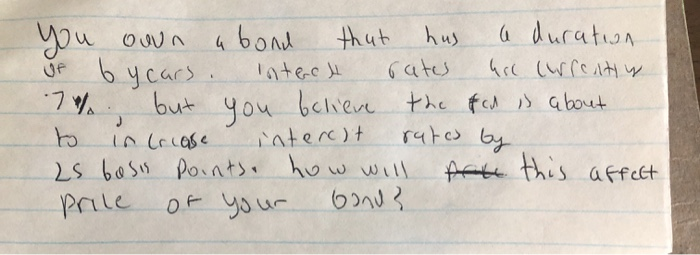 You own a bond that has a duration
of 6 years. Interest rates are currently
7%, but you believe the fed is about
to increase interest rates by
25 basis points. how will this affect
price of your bond?